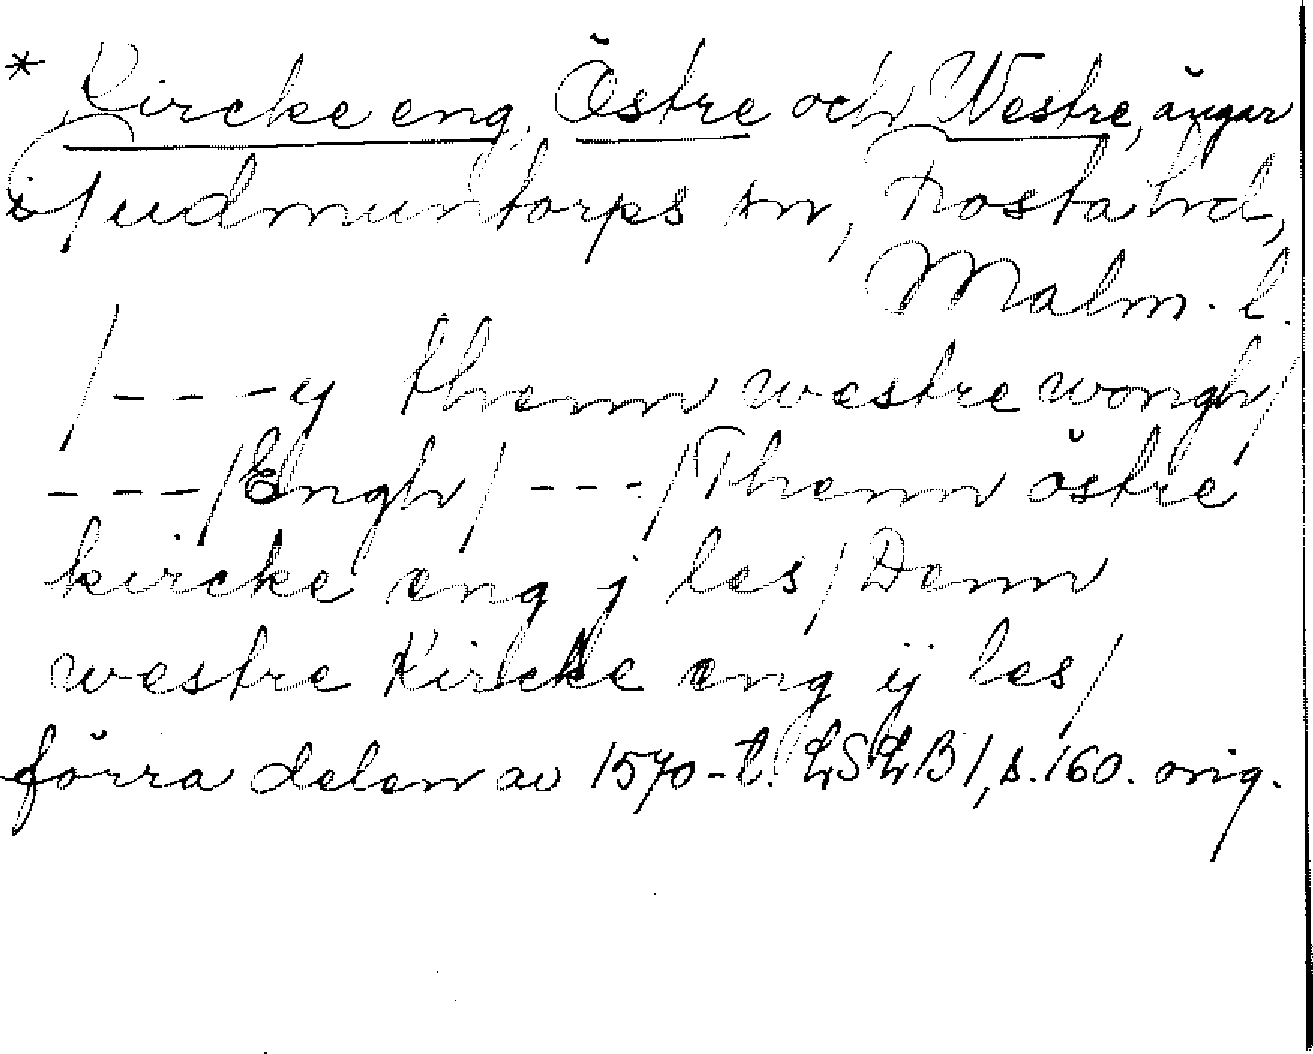 * Kircke eng, Östre och Westre, ängar
i Gudmuntorps sn, Frosta hd,
Malm. l.
/---y thenn westre wongh/
---/Engh/---/Thenn östre
kircke eng j les/Denn
westre Kircke eng ij les/
förra delen av 1570-t. LSLB 1, s. 160. orig.